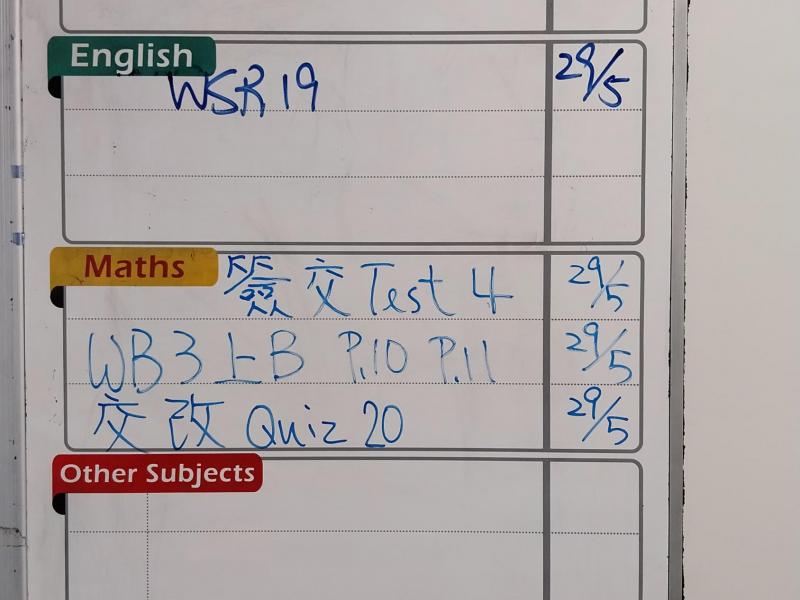 English
WSR 19 29/5
Maths
簽交 Test 4 29/5
WB 3上B P.10 P.11 29/5
交改 Quiz 20 29/5
Other Subjects